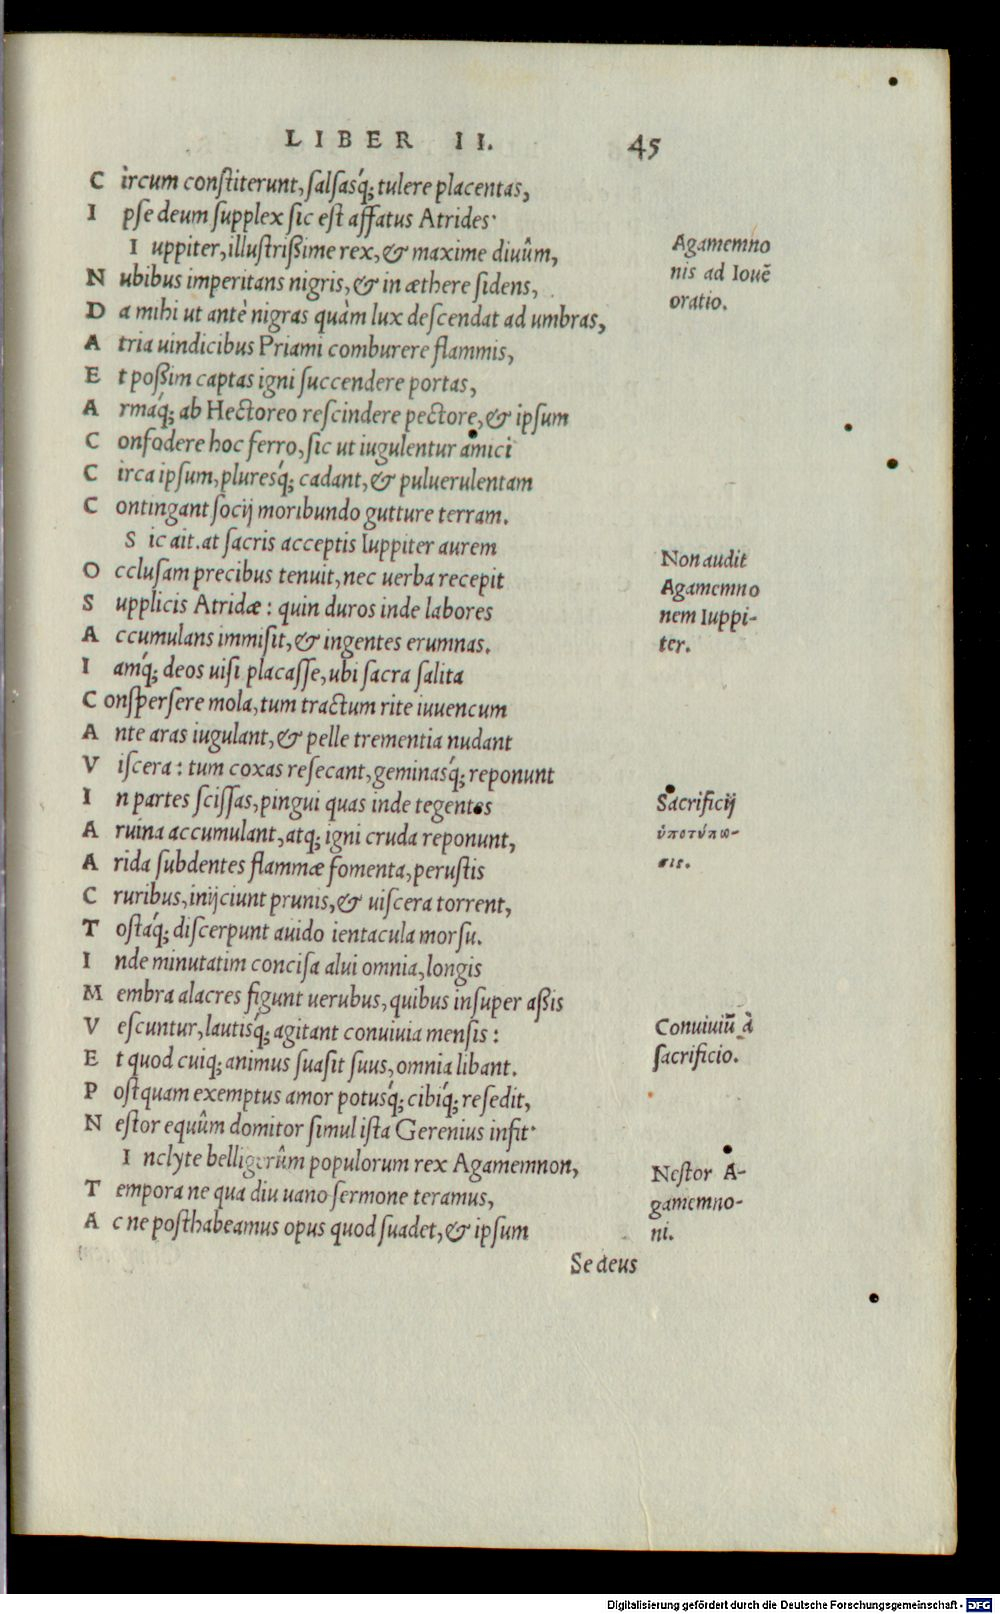 LIBER II. 45
Circum constiterunt, salsasq́; tulere placentas,
Ipse deum supplex sic est affatus Atrides·
Iuppiter, illustrißime rex, & maxime diuûm,
Agamemno
Nubibus imperitans nigris, & in æthere sidens,
nis ad Iouē
Da mihi ut antè nigras quàm lux descendat ad umbras,
oratio.
Atria uindicibus Priami comburere flammis,
Et poßim captas igni succendere portas,
Armáq́; ab Hectoreo rescindere pectore, & ipsum
Confodere hoc ferro, sic ut iugulentur amici
Circa ipsum, pluresq́; cadant, & puluerulentam
Contingant socij moribundo gutture terram.
Sic ait. at sacris acceptis Iuppiter aurem
Non audit
Occlusam precibus tenuit, nec uerba recepit
Agamemno
Supplicis Atridæ: quin duros inde labores
nem Iuppi-
Accumulans immisit, & ingentes erumnas.
ter.
Iamq́; deos uisi placasse, ubi sacra salita
Conspersere mola, tum tractum rite iuuencum
Ante aras iugulant, & pelle trementia nudant
Viscera: tum coxas resecant, geminasq́; reponunt
In partes scissas, pingui quas inde tegentes
Sacrificij
Aruina accumulant, atq; igni cruda reponunt,
ὑποτύπω-
Arida subdentes flammæ fomenta, perustis
σις.
Cruribus, inijciunt prunis, & uiscera torrent,
Tostáq́; discerpunt auido ientacula morsu.
Inde minutatim concisa alui omnia, longis
Membra alacres figunt uerubus, quibus insuper aßis
Vescuntur, lautisq́; agitant conuiuia mensis:
Conuiuiū à
Et quod cuiq; animus suasit suus, omnia libant.
sacrificio.
Postquam exemptus amor potusq́; cibiq́; resedit,
Nestor equûm domitor simul ista Gerenius infit·
Inclyte belligerûm populorum rex Agamemnon,
Nestor A-
Tempora ne qua diu uano sermone teramus,
gamemno-
Ac ne posthabeamus opus quod suadet, & ipsum
ni.
Se deus
Digitalisierung gefördert durch die Deutsche Forschungsgemeinschaft - DFG